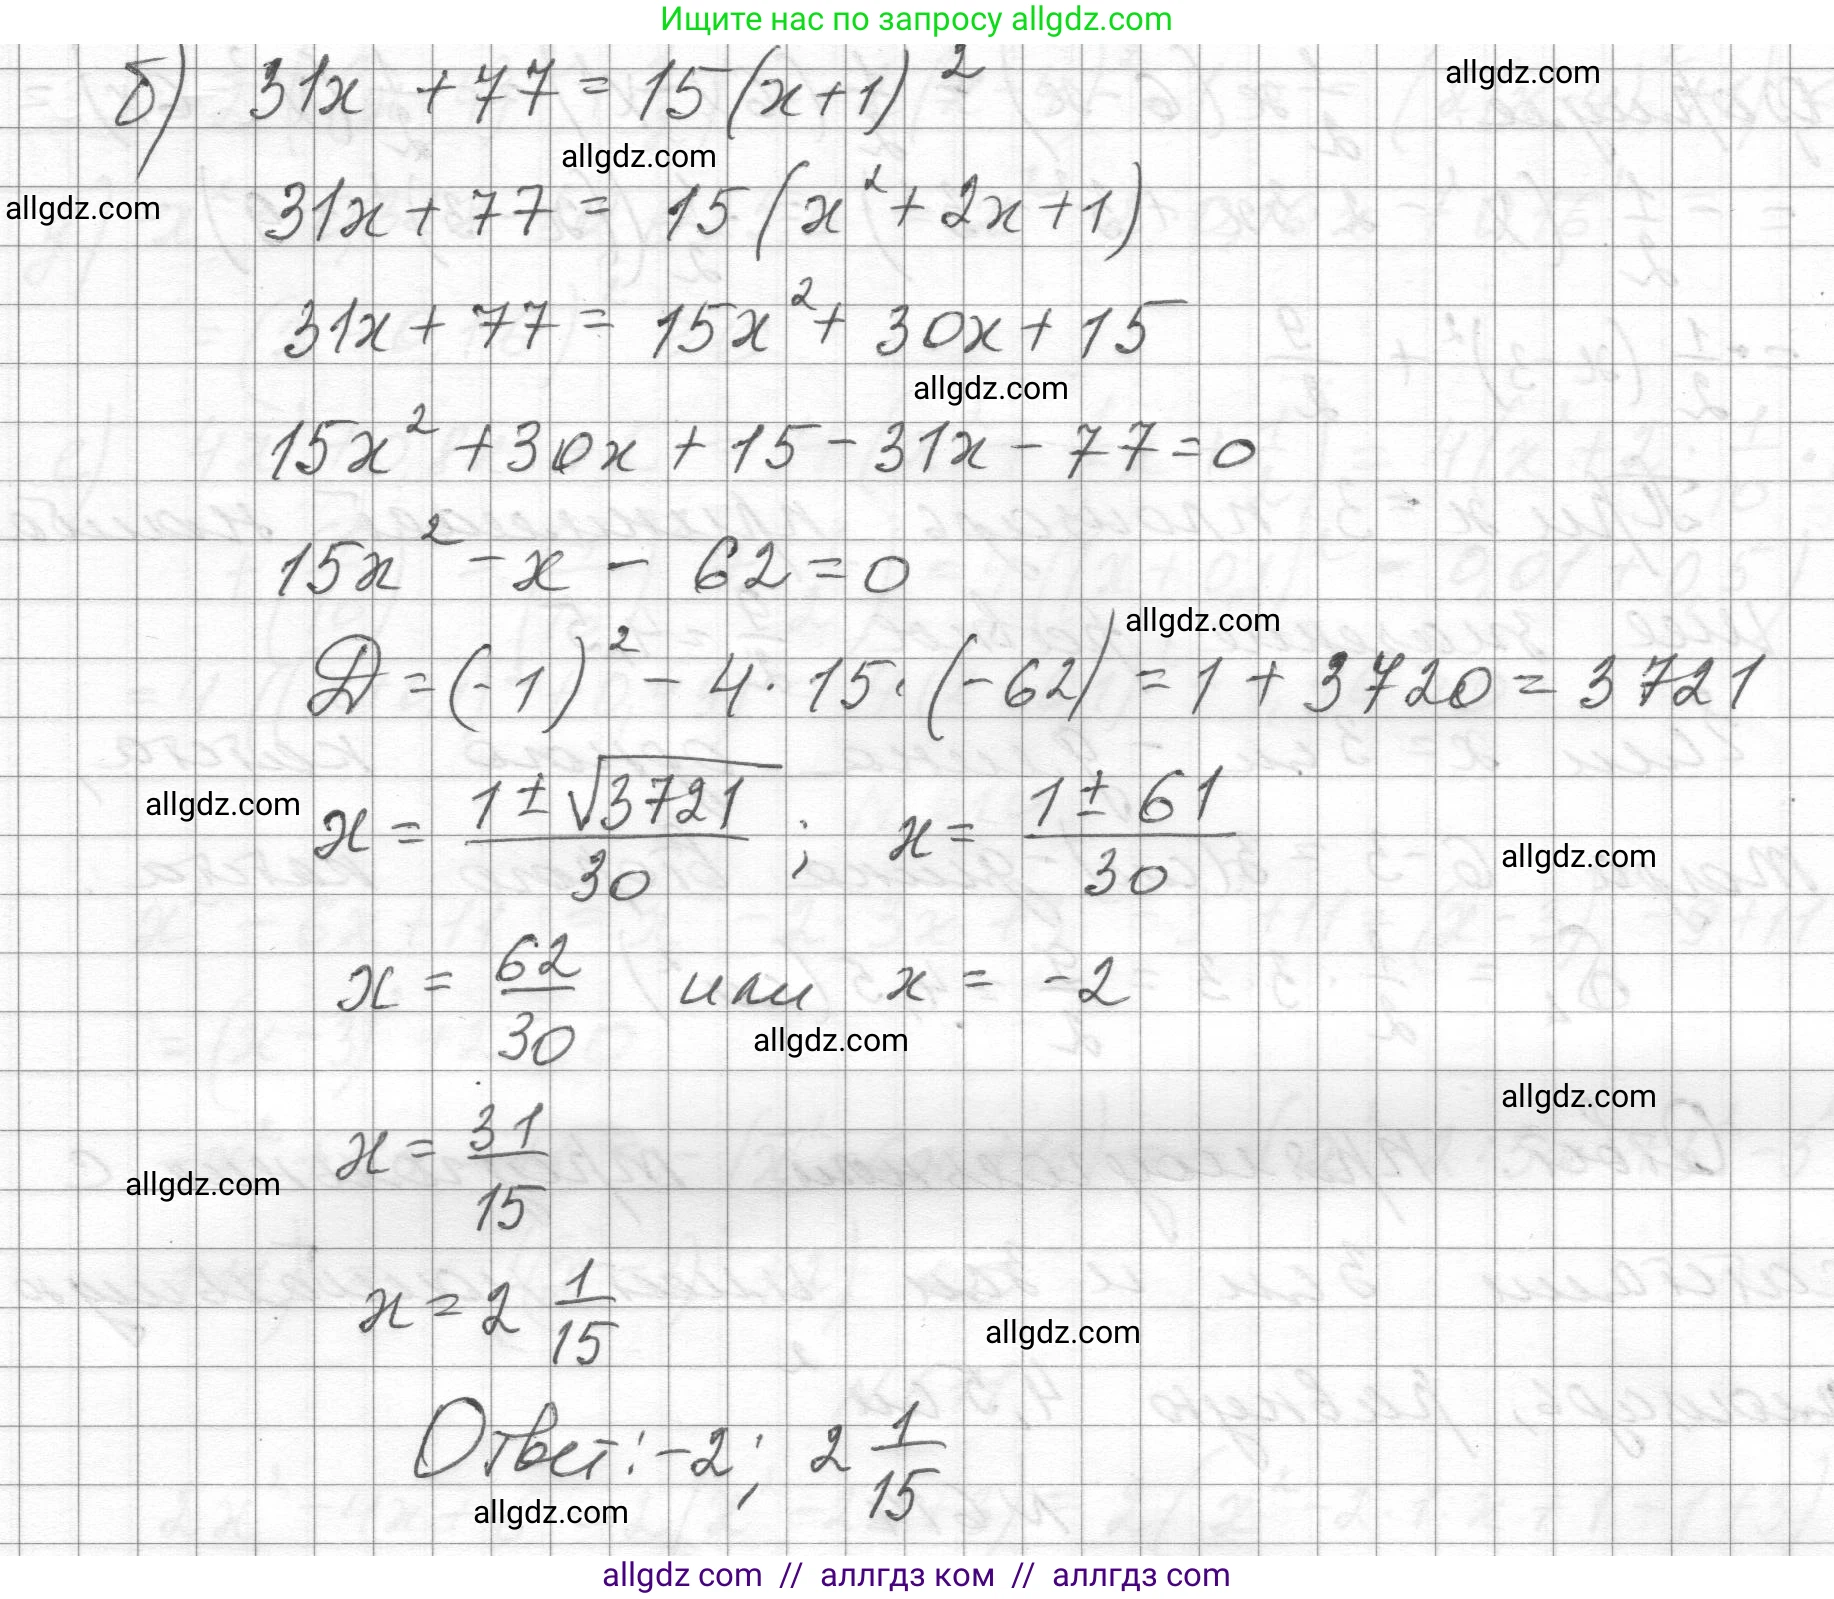 Ищите нас по запросу allgdz.com
б) 31x + 77 = 15(x+1)²
allgdz.com
allgdz.com
allgdz.com
31x + 77 = 15(x² + 2x + 1)
31x + 77 = 15x² + 30x + 15
allgdz.com
15x² + 30x + 15 - 31x - 77 = 0
15x² - x - 62 = 0
allgdz.com
D = (-1)² - 4 · 15 · (-62) = 1 + 3720 = 3721
allgdz.com
x = (1 ± √3721)/30 ; x = (1 ± 61)/30
allgdz.com
x = 62/30 или x = -2
allgdz.com
allgdz.com
x = 31/15
allgdz.com
x = 2 1/15
allgdz.com
Ответ: -2; 2 1/15
allgdz.com
allgdz com // аллгдз ком // аллгдз com